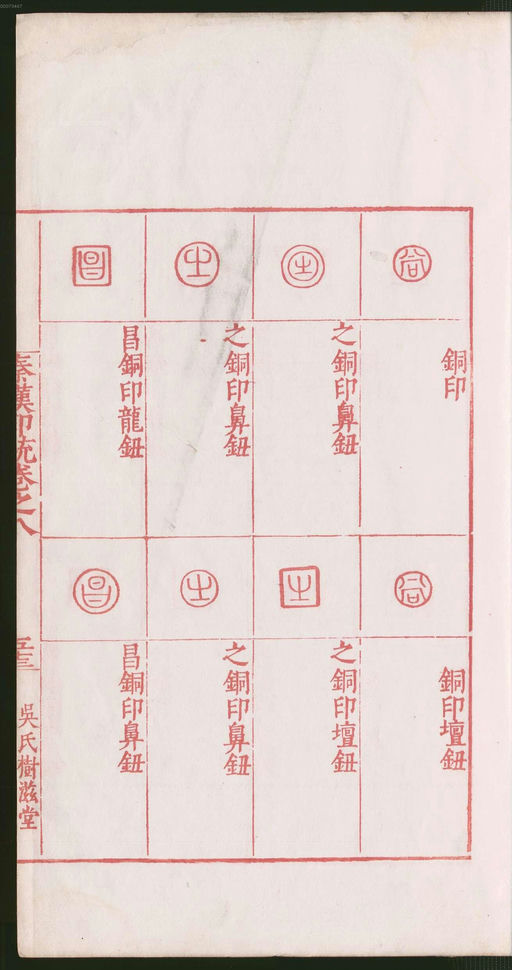 銅印
之銅印鼻鈕
之銅印鼻鈕
昌銅印龍鈕
銅印壇鈕
之銅印壇鈕
之銅印鼻鈕
昌銅印鼻鈕
秦漢印統卷之八
吳氏樹滋堂